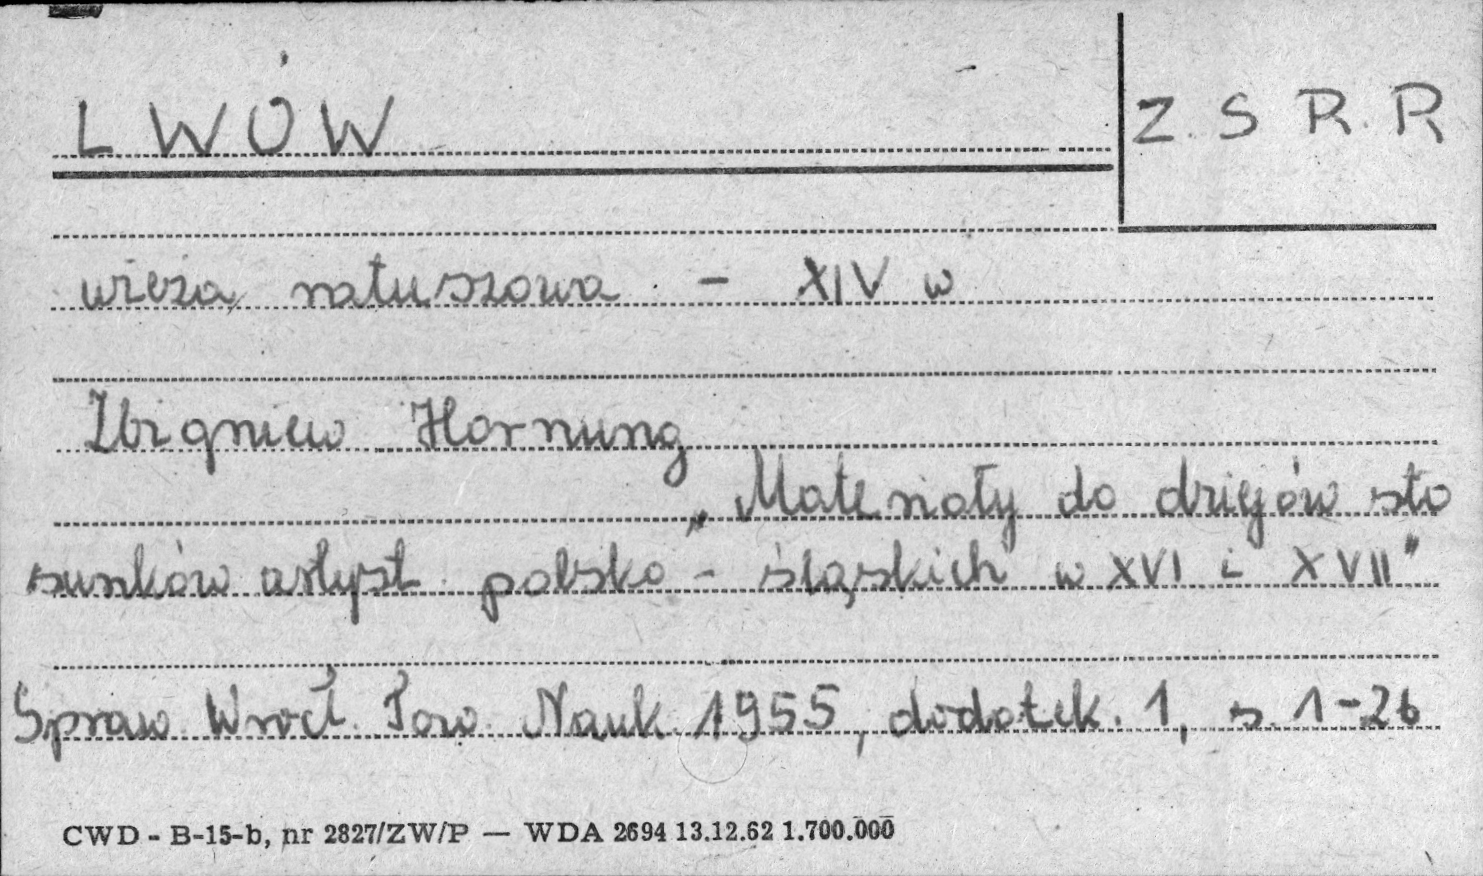 LWÓW
Z.S.R.R
wieża ratuszowa - XIV w
Zbigniew Hornung
„Materiały do dziejów sto
sunków artyst. polsko - śląskich w XVI i XVII"
Spraw. Wrocł. Tow. Nauk. 1955, dodatek. 1, s. 1-26
CWD - B-15-b, nr 2827/ZW/P — WDA 2694 13.12.62 1.700.000